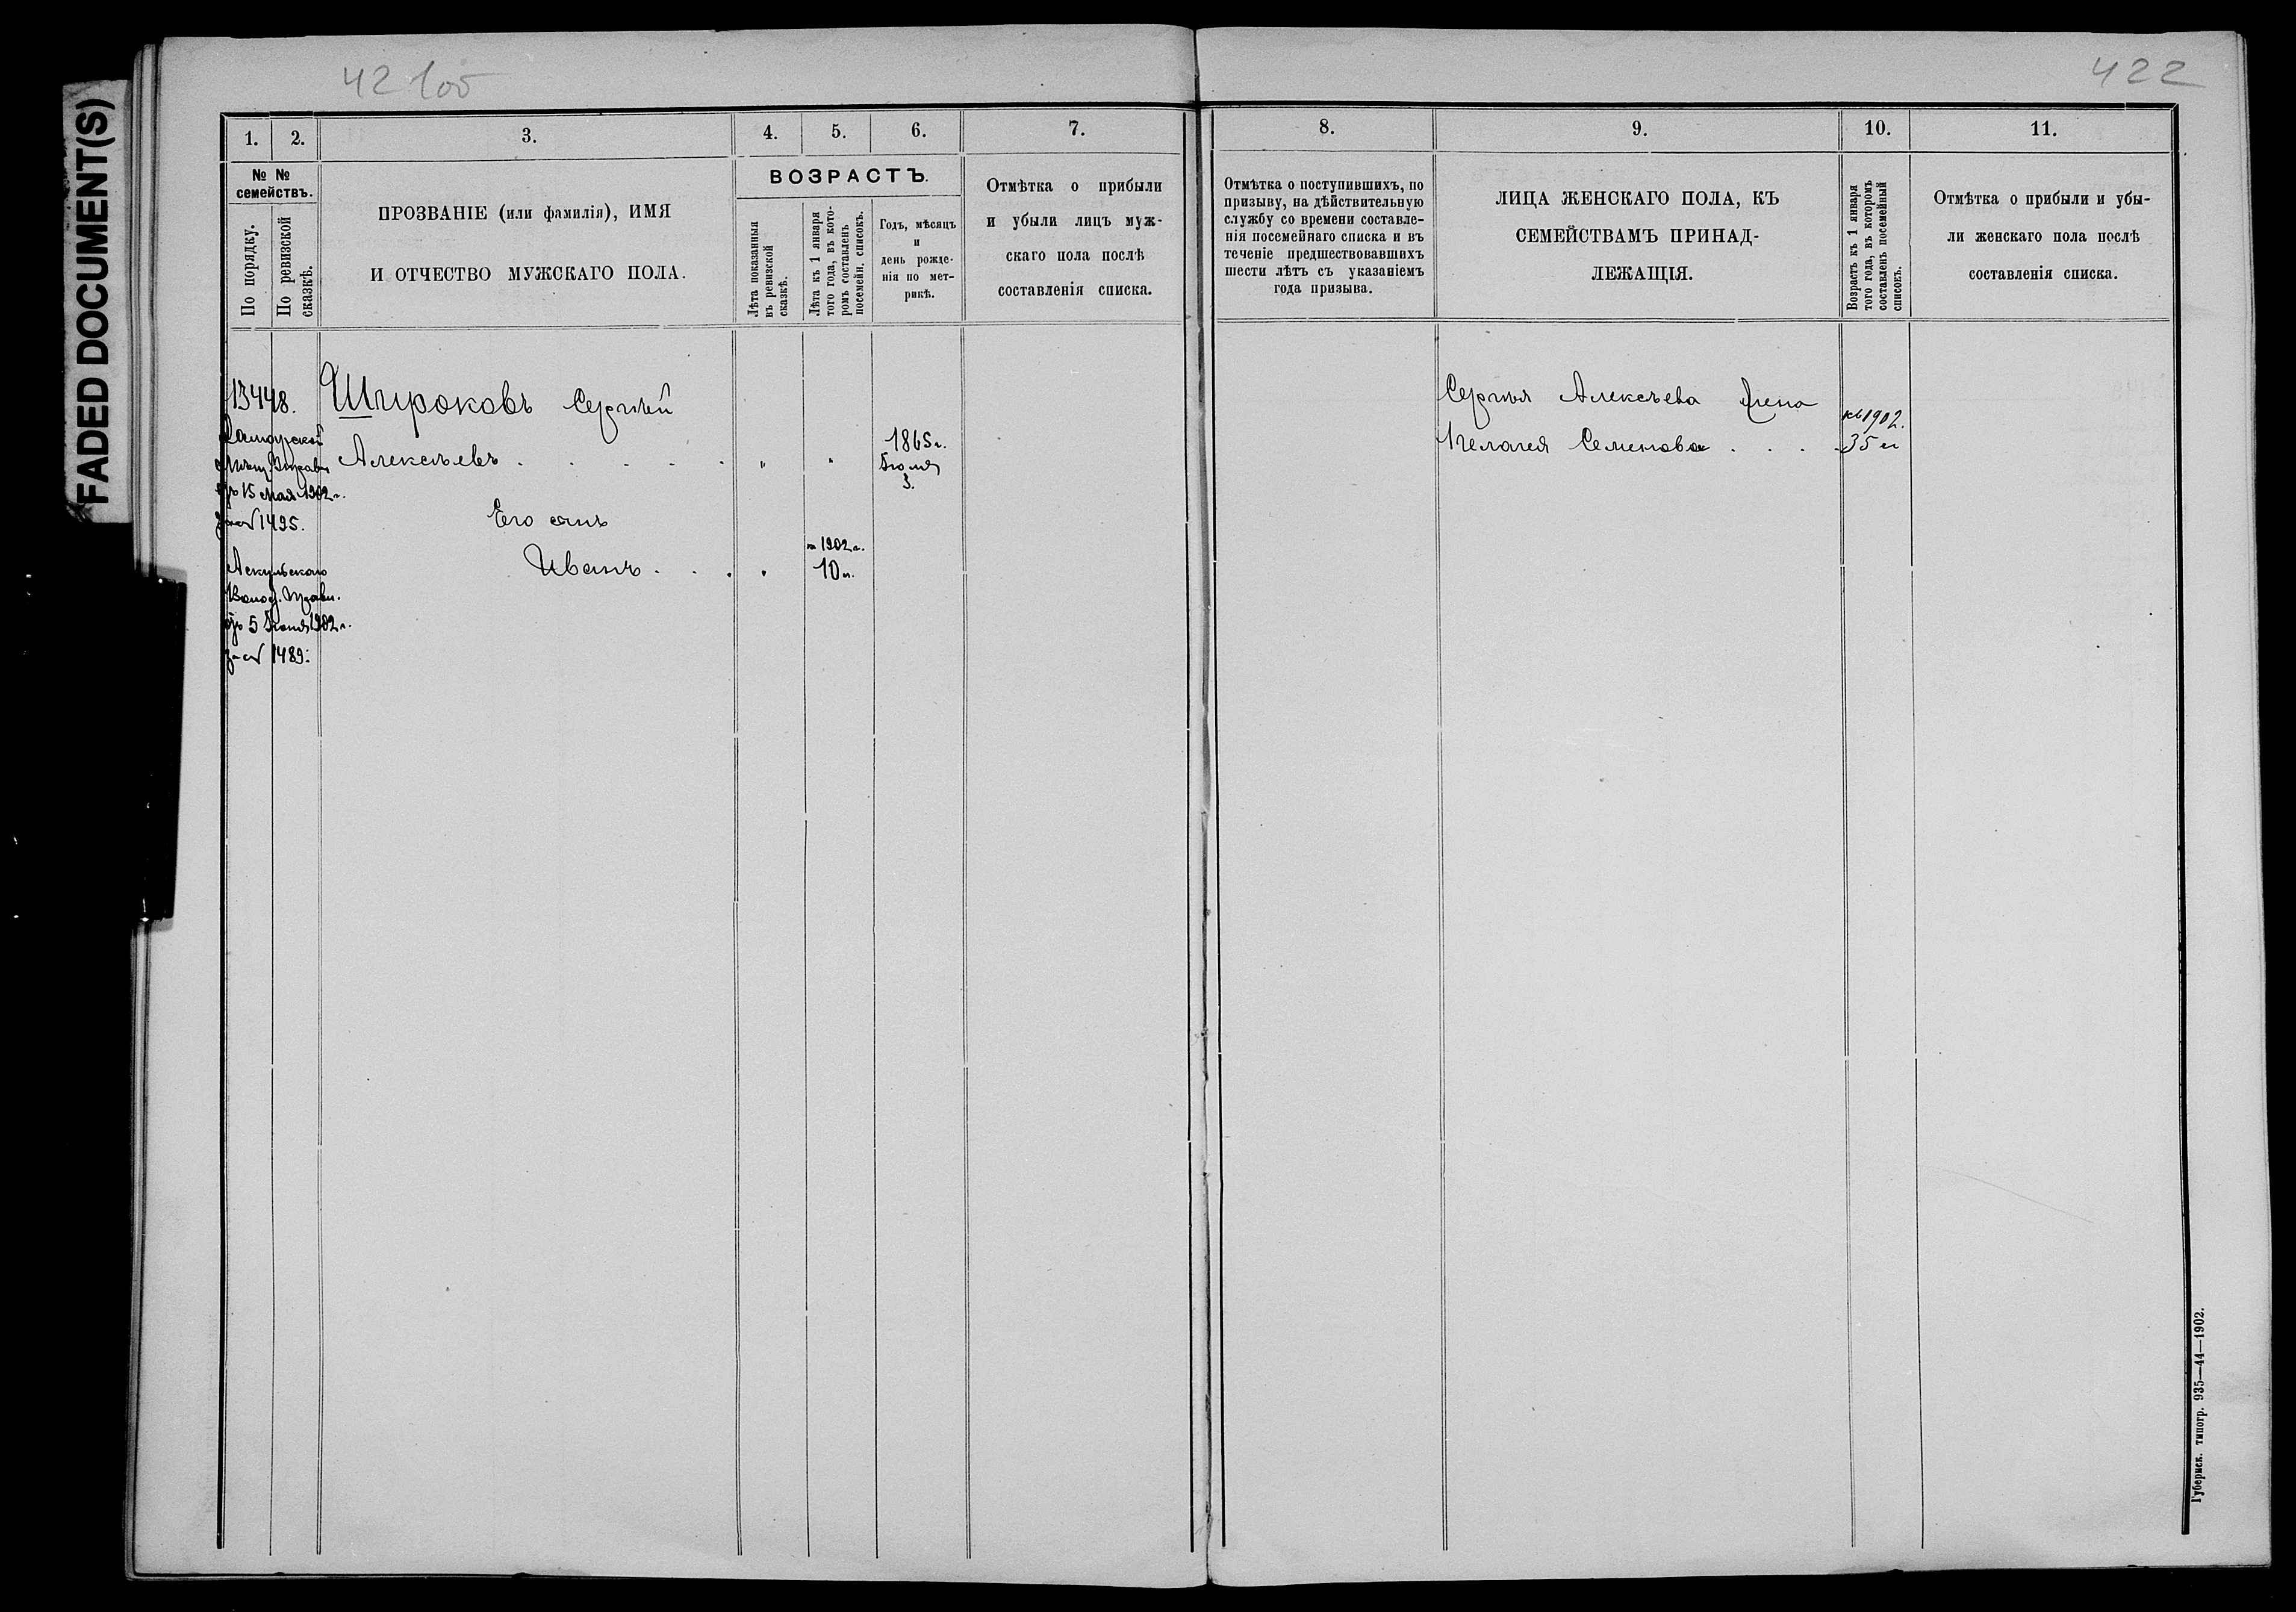 FADED DOCUMENT(S)
42 1об
422
1.
2.
3.
4.
5.
6.
7.
8.
9.
10.
11.
№ №
семействъ.
По порядку.
По ревизской
сказкѣ.
ПРОЗВАНІЕ (или фамилія), ИМЯ
И ОТЧЕСТВО МУЖСКАГО ПОЛА.
ВОЗРАСТЪ.
Лѣта показанныя
въ ревизской
сказкѣ.
Лѣта къ 1 января
того года, въ кото-
ромъ составленъ
посемейн. списокъ.
Годъ, мѣсяцъ
и
день рожде-
нія по мет-
рикѣ.
Отмѣтка о прибыли
и убыли лицъ муж-
скаго пола послѣ
составленія списка.
Отмѣтка о поступившихъ, по
призыву, на дѣйствительную
службу со времени составле-
нія посемейнаго списка и въ
теченіе предшествовавшихъ
шести лѣтъ съ указаніемъ
года призыва.
ЛИЦА ЖЕНСКАГО ПОЛА, КЪ
СЕМЕЙСТВАМЪ ПРИНАД-
ЛЕЖАЩІЯ.
Возрастъ къ 1 января
того года, въ которомъ
составленъ посемейный
списокъ.
Отмѣтка о прибыли и убы-
ли женскаго пола послѣ
составленія списка.
13448.
Самарской
Мѣщ. Управы
отъ 15 мая 1902 г.
за № 1495.
Аскульскаго
Волос. Правл.
отъ 5 Іюня 1902 г.
за № 1489.
Широковъ Сергѣй
Алексѣевъ . . . . . " "
1865 г.
Іюля
3.
Его сынъ
Иванъ . . . "
къ 1902 г.
10 л.
Сергѣя Алексѣева жена
Пелагея Семенова . . . .
къ 1902.
35 л
Губернск. типогр. 935—44—1902.